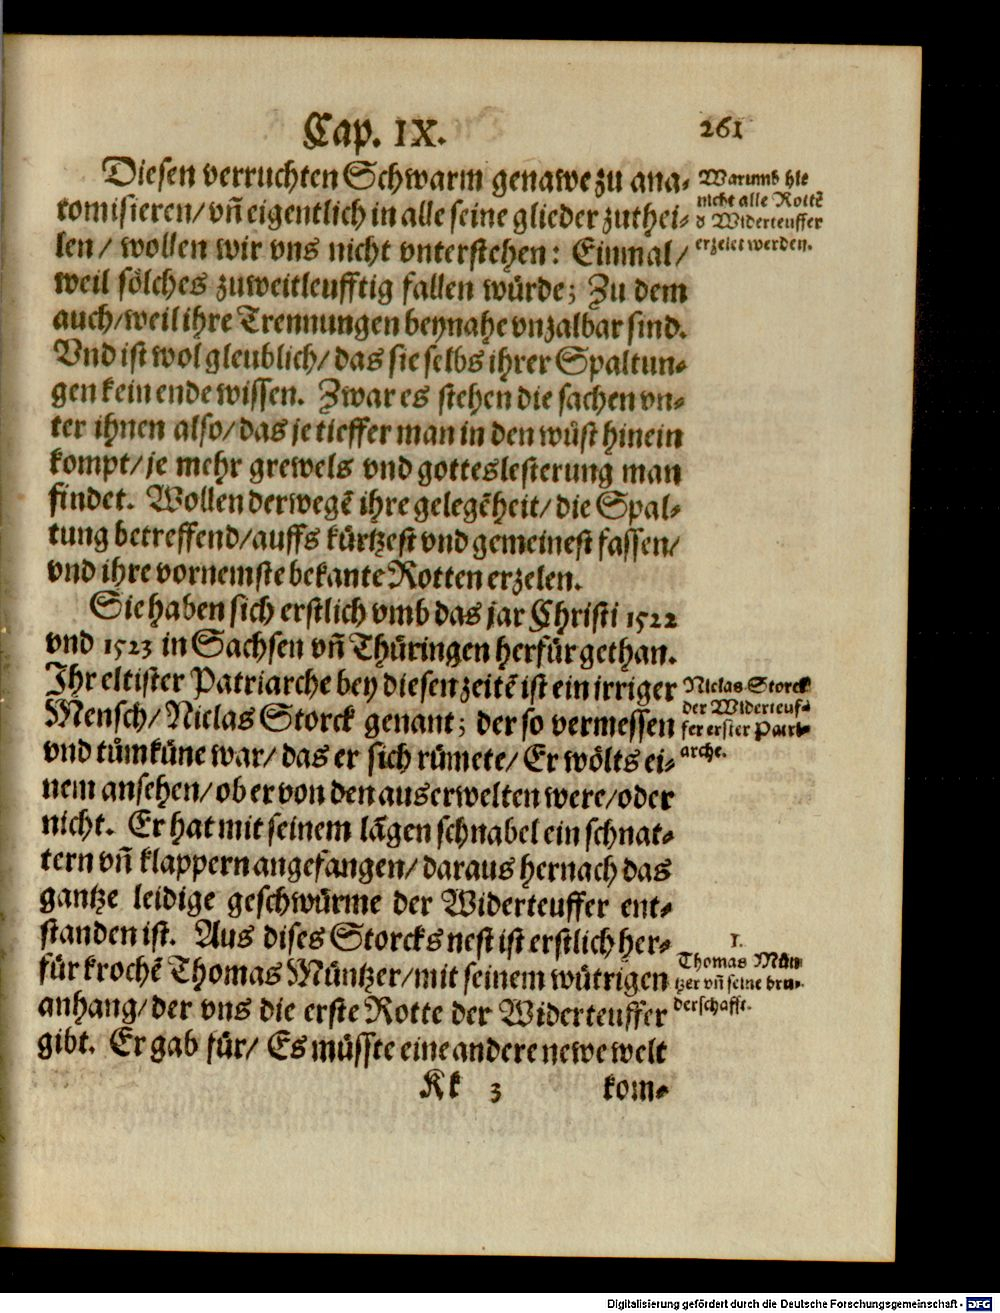 Cap. IX. 261
Diesen verruchten Schwarm genawe zu ana⸗
tomisieren/ vñ eigentlich in alle seine glieder zuthei⸗
len/ wollen wir vns nicht vnterstehen: Einmal/
weil sölches zuweitleufftig fallen würde; Zu dem
auch/weil ihre Trennungen beynahe vnzalbar sind.
Vnd ist wol gleublich/ das sie selbs ihrer Spaltun⸗
gen kein ende wissen. Zwar es stehen die sachen vn⸗
ter ihnen also/ das je tieffer man in den wüst hinein
kompt/ je mehr grewels vnd gotteslesterung man
findet. Wollen derwegẽ ihre gelegẽheit/ die Spal⸗
tung betreffend/auffs kürtzest vnd gemeinest fassen/
vnd ihre vornemste bekante Rotten erzelen.
Warumb hie
nicht alle Rottẽ
d Widerteuffer
erzelet werden.
Sie haben sich erstlich vmb das jar Christi 1522
vnd 1523 in Sachsen vñ Thüringen herfür gethan.
Ihr eltister Patriarche bey diesen zeitẽ ist ein irriger
Mensch/ Niclas Storck genant; der so vermessen
vnd tümküne war/ das er sich rümete/ Er wölts ei⸗
nem ansehen/ ob er von den auserwelten were/oder
nicht. Er hat mit seinem lãgen schnabel ein schnat⸗
tern vñ klappern angefangen/ daraus hernach das
gantze leidige geschwürme der Widerteuffer ent⸗
standen ist. Aus dises Storcks nest ist erstlich her⸗
für krochẽ Thomas Müntzer/mit seinem wütrigen
anhang/ der vns die erste Rotte der Widerteuffer
gibt. Er gab für/ Es müsste eine andere newe welt
Niclas Storck
der Widerteuf⸗
fer erster Patri⸗
arche.
1.
Thomas Mün
tzer vñ seine bru⸗
derschafft.
Kk 3 kom⸗
Digitalisierung gefördert durch die Deutsche Forschungsgemeinschaft - DFG